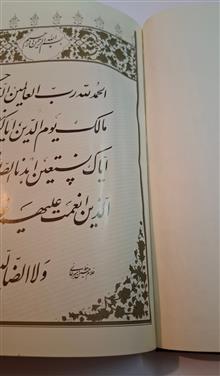 بسم الله الرحمن الرحیم
الحمد لله رب العالمین
مالک یوم الدین ایاک
ایاک نستعین اهدنا
الذین انعمت علیهم
ولا الضا